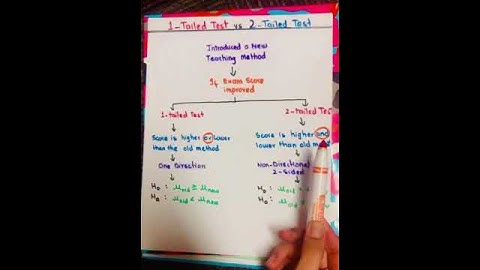 1-Tailed Test vs 2-Tailed Test
Introduced a New
Teaching Method
If Exam Score
improved
1-tailed Test
Score is higher or lower
than the old method
One Direction
H₀ : μold ≥ μnew
Hₐ : μold < μnew
2-tailed Test
Score is higher and
lower than old
Non-Directional
2-Sided
H₀ : μold
Hₐ : μold